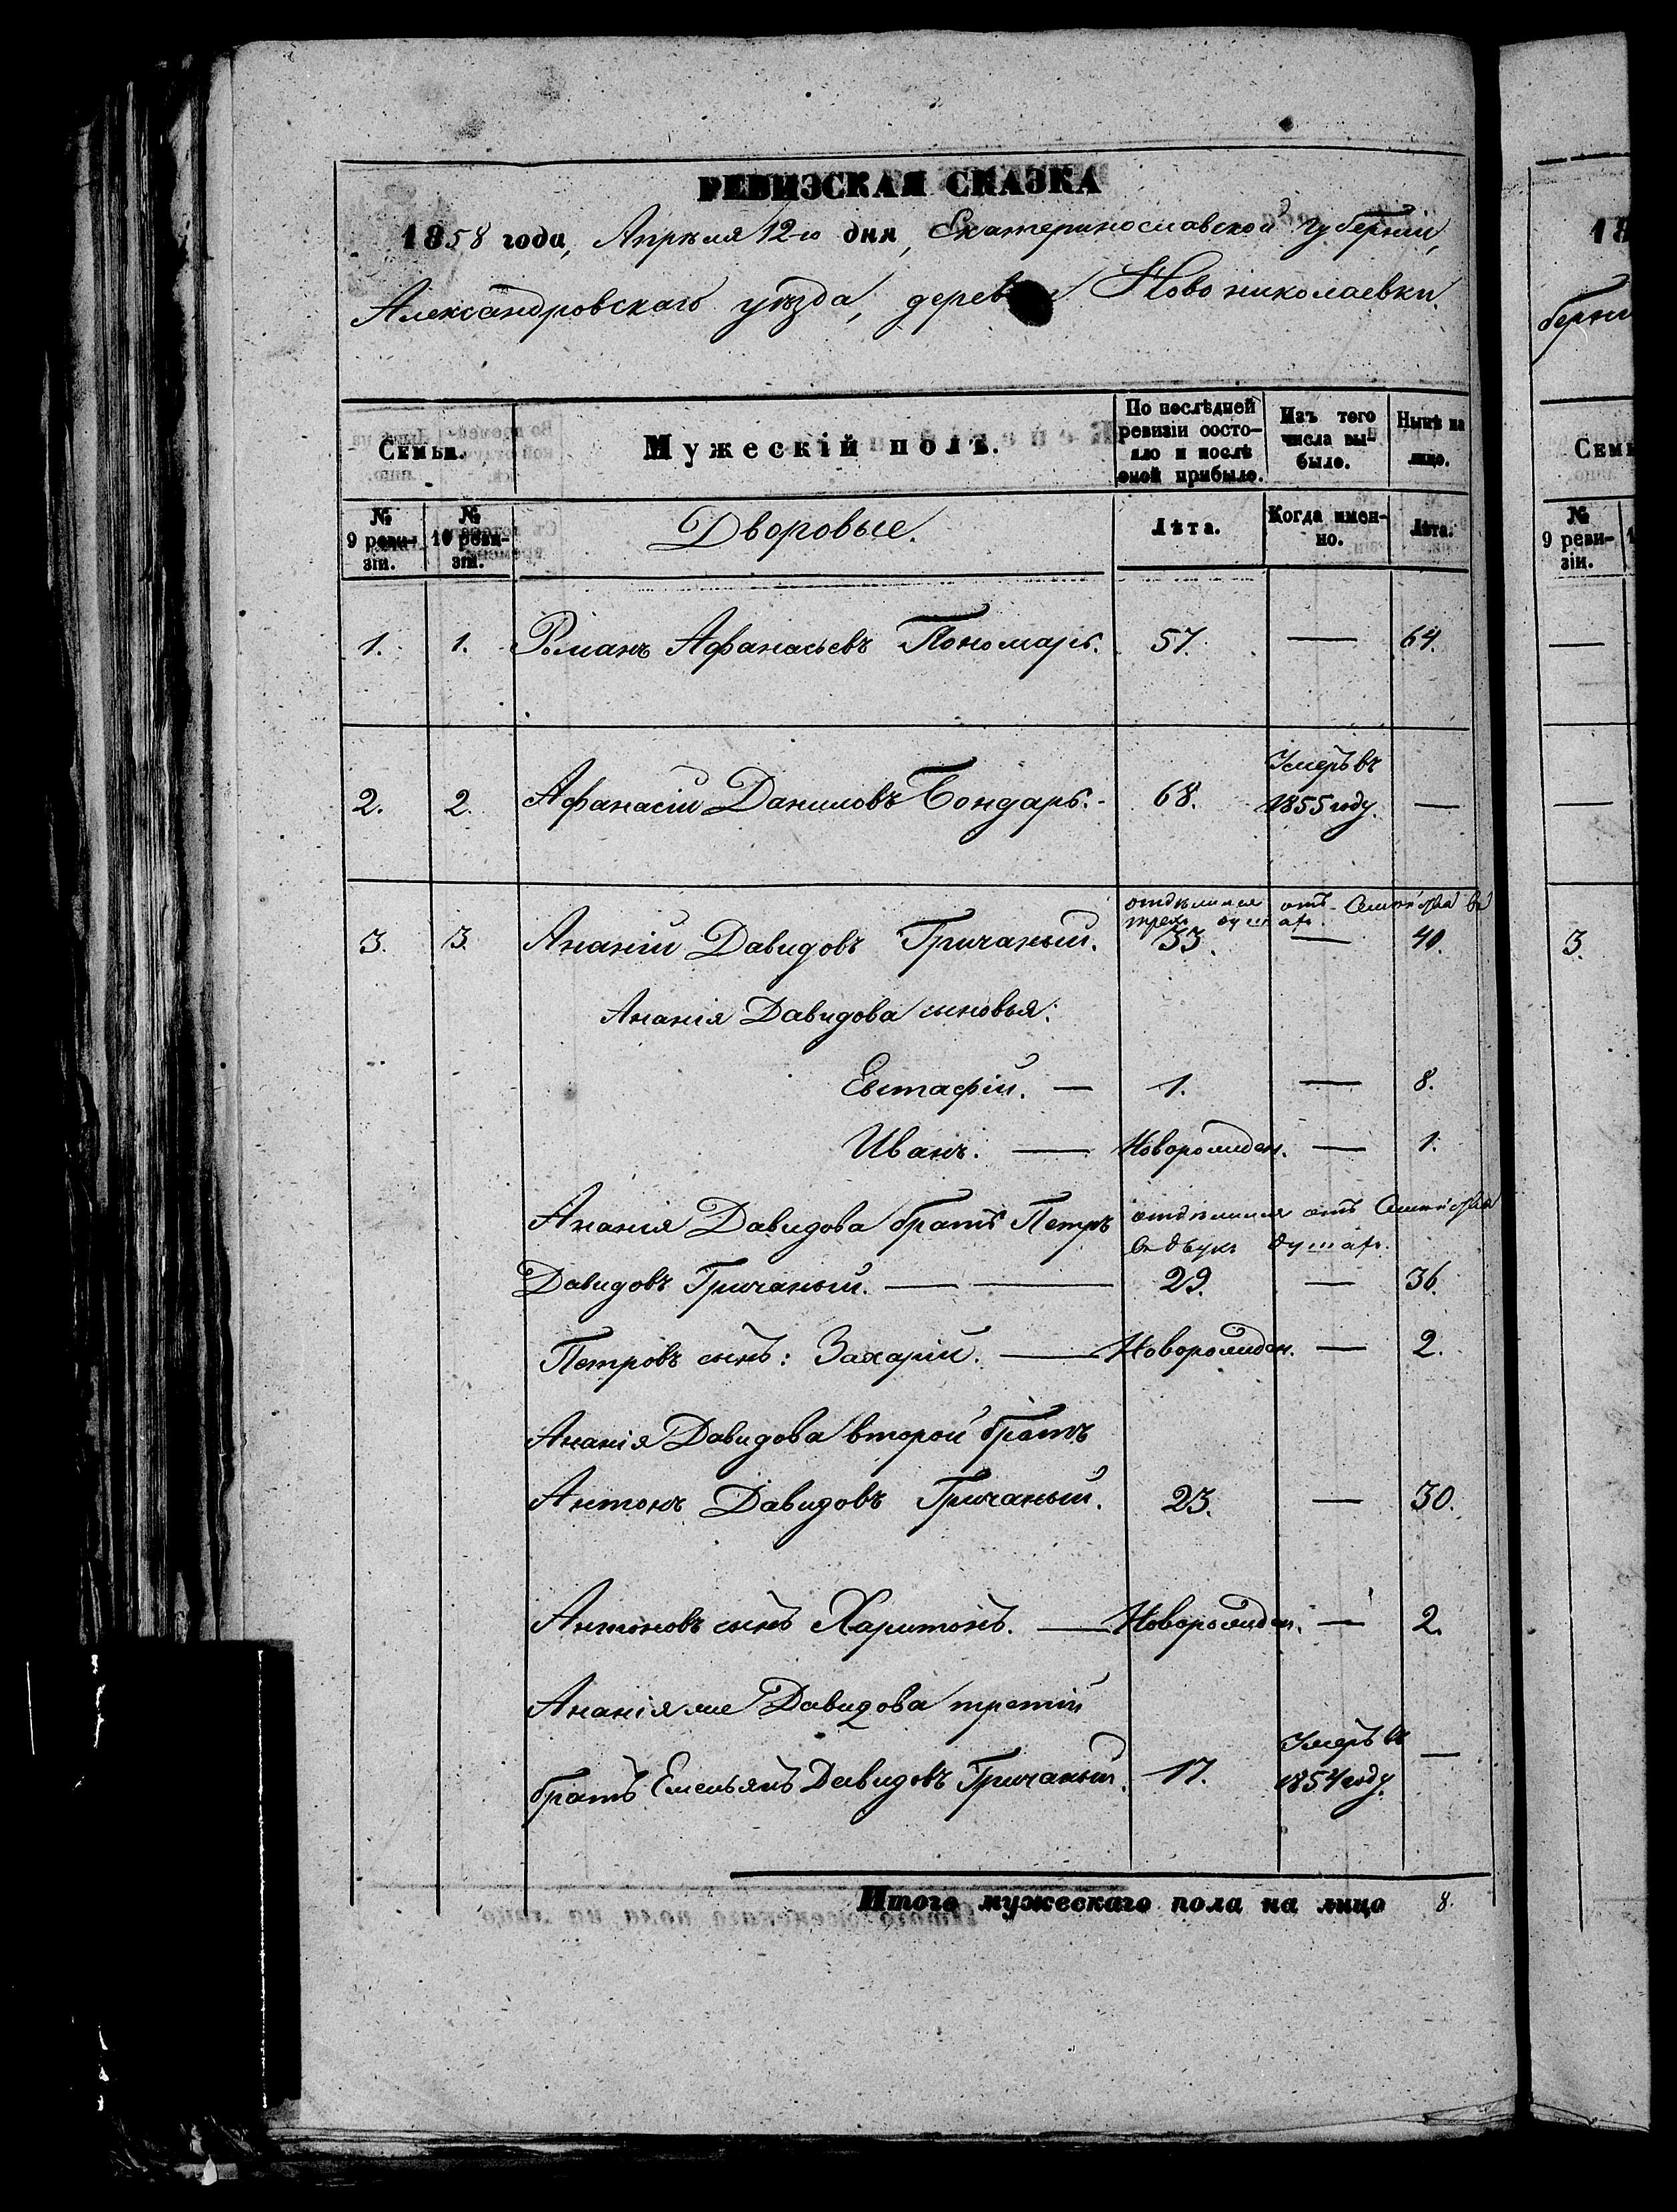 РЕВИЗСКАЯ СКАЗКА
1858 года, Апрѣля 12-го дня, Екатеринославской губерніи,
Александровскаго уѣзда, деревни Новониколаевки.
Семьи. Мужескій полъ. По послѣдней ревизіи состояло и послѣ оной прибыло. Изъ того числа выбыло. Нынѣ на лицо.
№ 9 ревизіи. № 10 ревизіи. Дворовые. Лѣта. Когда именно. Лѣта.
1. 1. Романъ Афанасьевъ Пономарь. 57. — 64.
2. 2. Афанасій Даниловъ Бондарь. 68. Умеръ въ 1855 году. —
отделился отъ Семейства въ
трехъ душахъ.
3. 3. Ананій Давидовъ Гричаный. 33. — 40.
Ананія Давидова сыновья:
Евстафій. — 1. — 8.
Иванъ. — Новорожден. — 1.
Ананія Давидова братъ Петръ отделился отъ Семейства
въ двухъ душахъ.
Давидовъ Гричаный. — — 29. — 36.
Петровъ сынъ: Захарій. — Новорожден. — 2.
Ананія Давидова второй братъ
Антонъ Давидовъ Гричаный. 23. — 30.
Антоновъ сынъ Харитонъ. — Новорожден. — 2.
Ананія же Давидова третій
братъ Емельянъ Давидовъ Гричаный. 17. Умеръ въ 1854 году. —
Итого мужескаго пола на лицо 8.
18
берні
Семь
№ 9 ревизіи.
—
—
3.